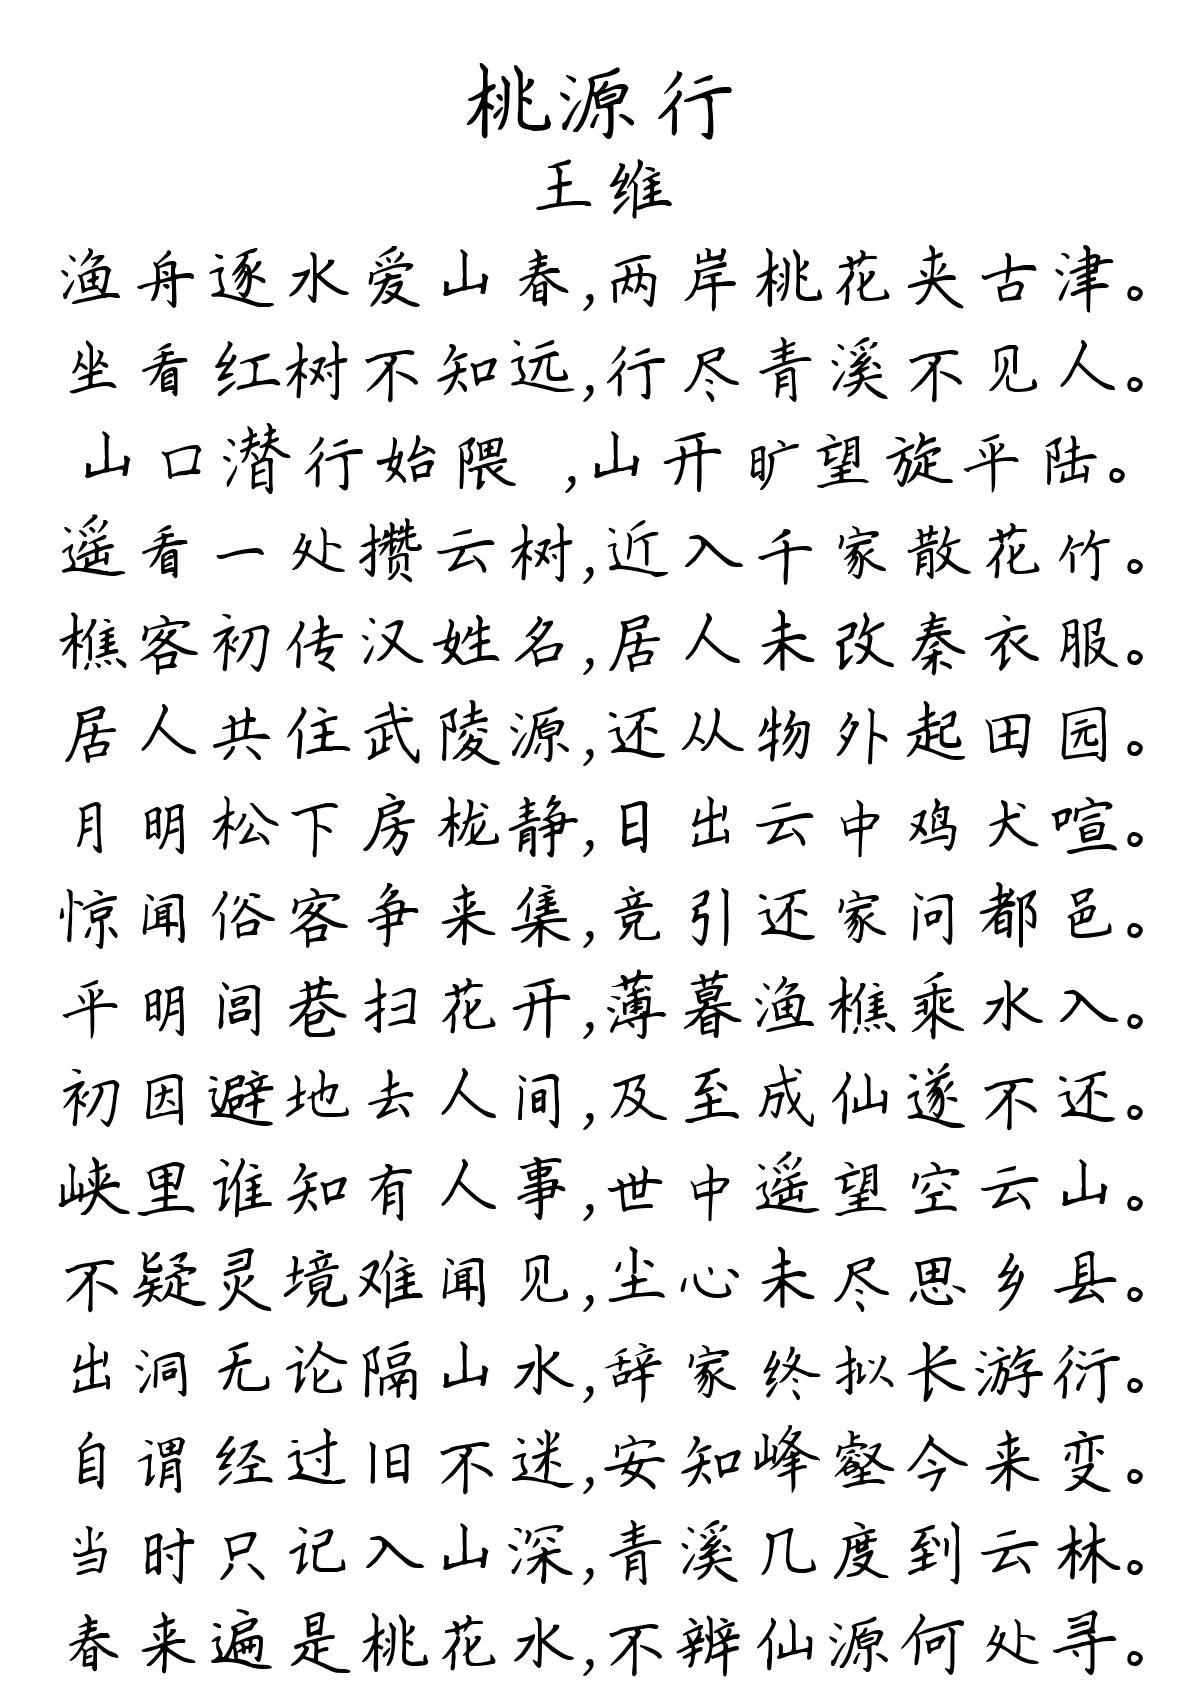 桃源行
王维
渔舟逐水爱山春,两岸桃花夹古津。
坐看红树不知远,行尽青溪不见人。
山口潜行始隈 ,山开旷望旋平陆。
遥看一处攒云树,近入千家散花竹。
樵客初传汉姓名,居人未改秦衣服。
居人共住武陵源,还从物外起田园。
月明松下房栊静,日出云中鸡犬喧。
惊闻俗客争来集,竞引还家问都邑。
平明闾巷扫花开,薄暮渔樵乘水入。
初因避地去人间,及至成仙遂不还。
峡里谁知有人事,世中遥望空云山。
不疑灵境难闻见,尘心未尽思乡县。
出洞无论隔山水,辞家终拟长游衍。
自谓经过旧不迷,安知峰壑今来变。
当时只记入山深,青溪几度到云林。
春来遍是桃花水,不辨仙源何处寻。